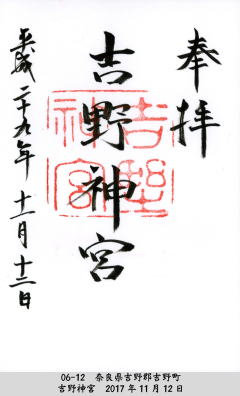 奉拝
吉野神宮
吉野神宮
平成二十九年十一月十二日
06-12 奈良県吉野郡吉野町
吉野神宮 2017年11月12日